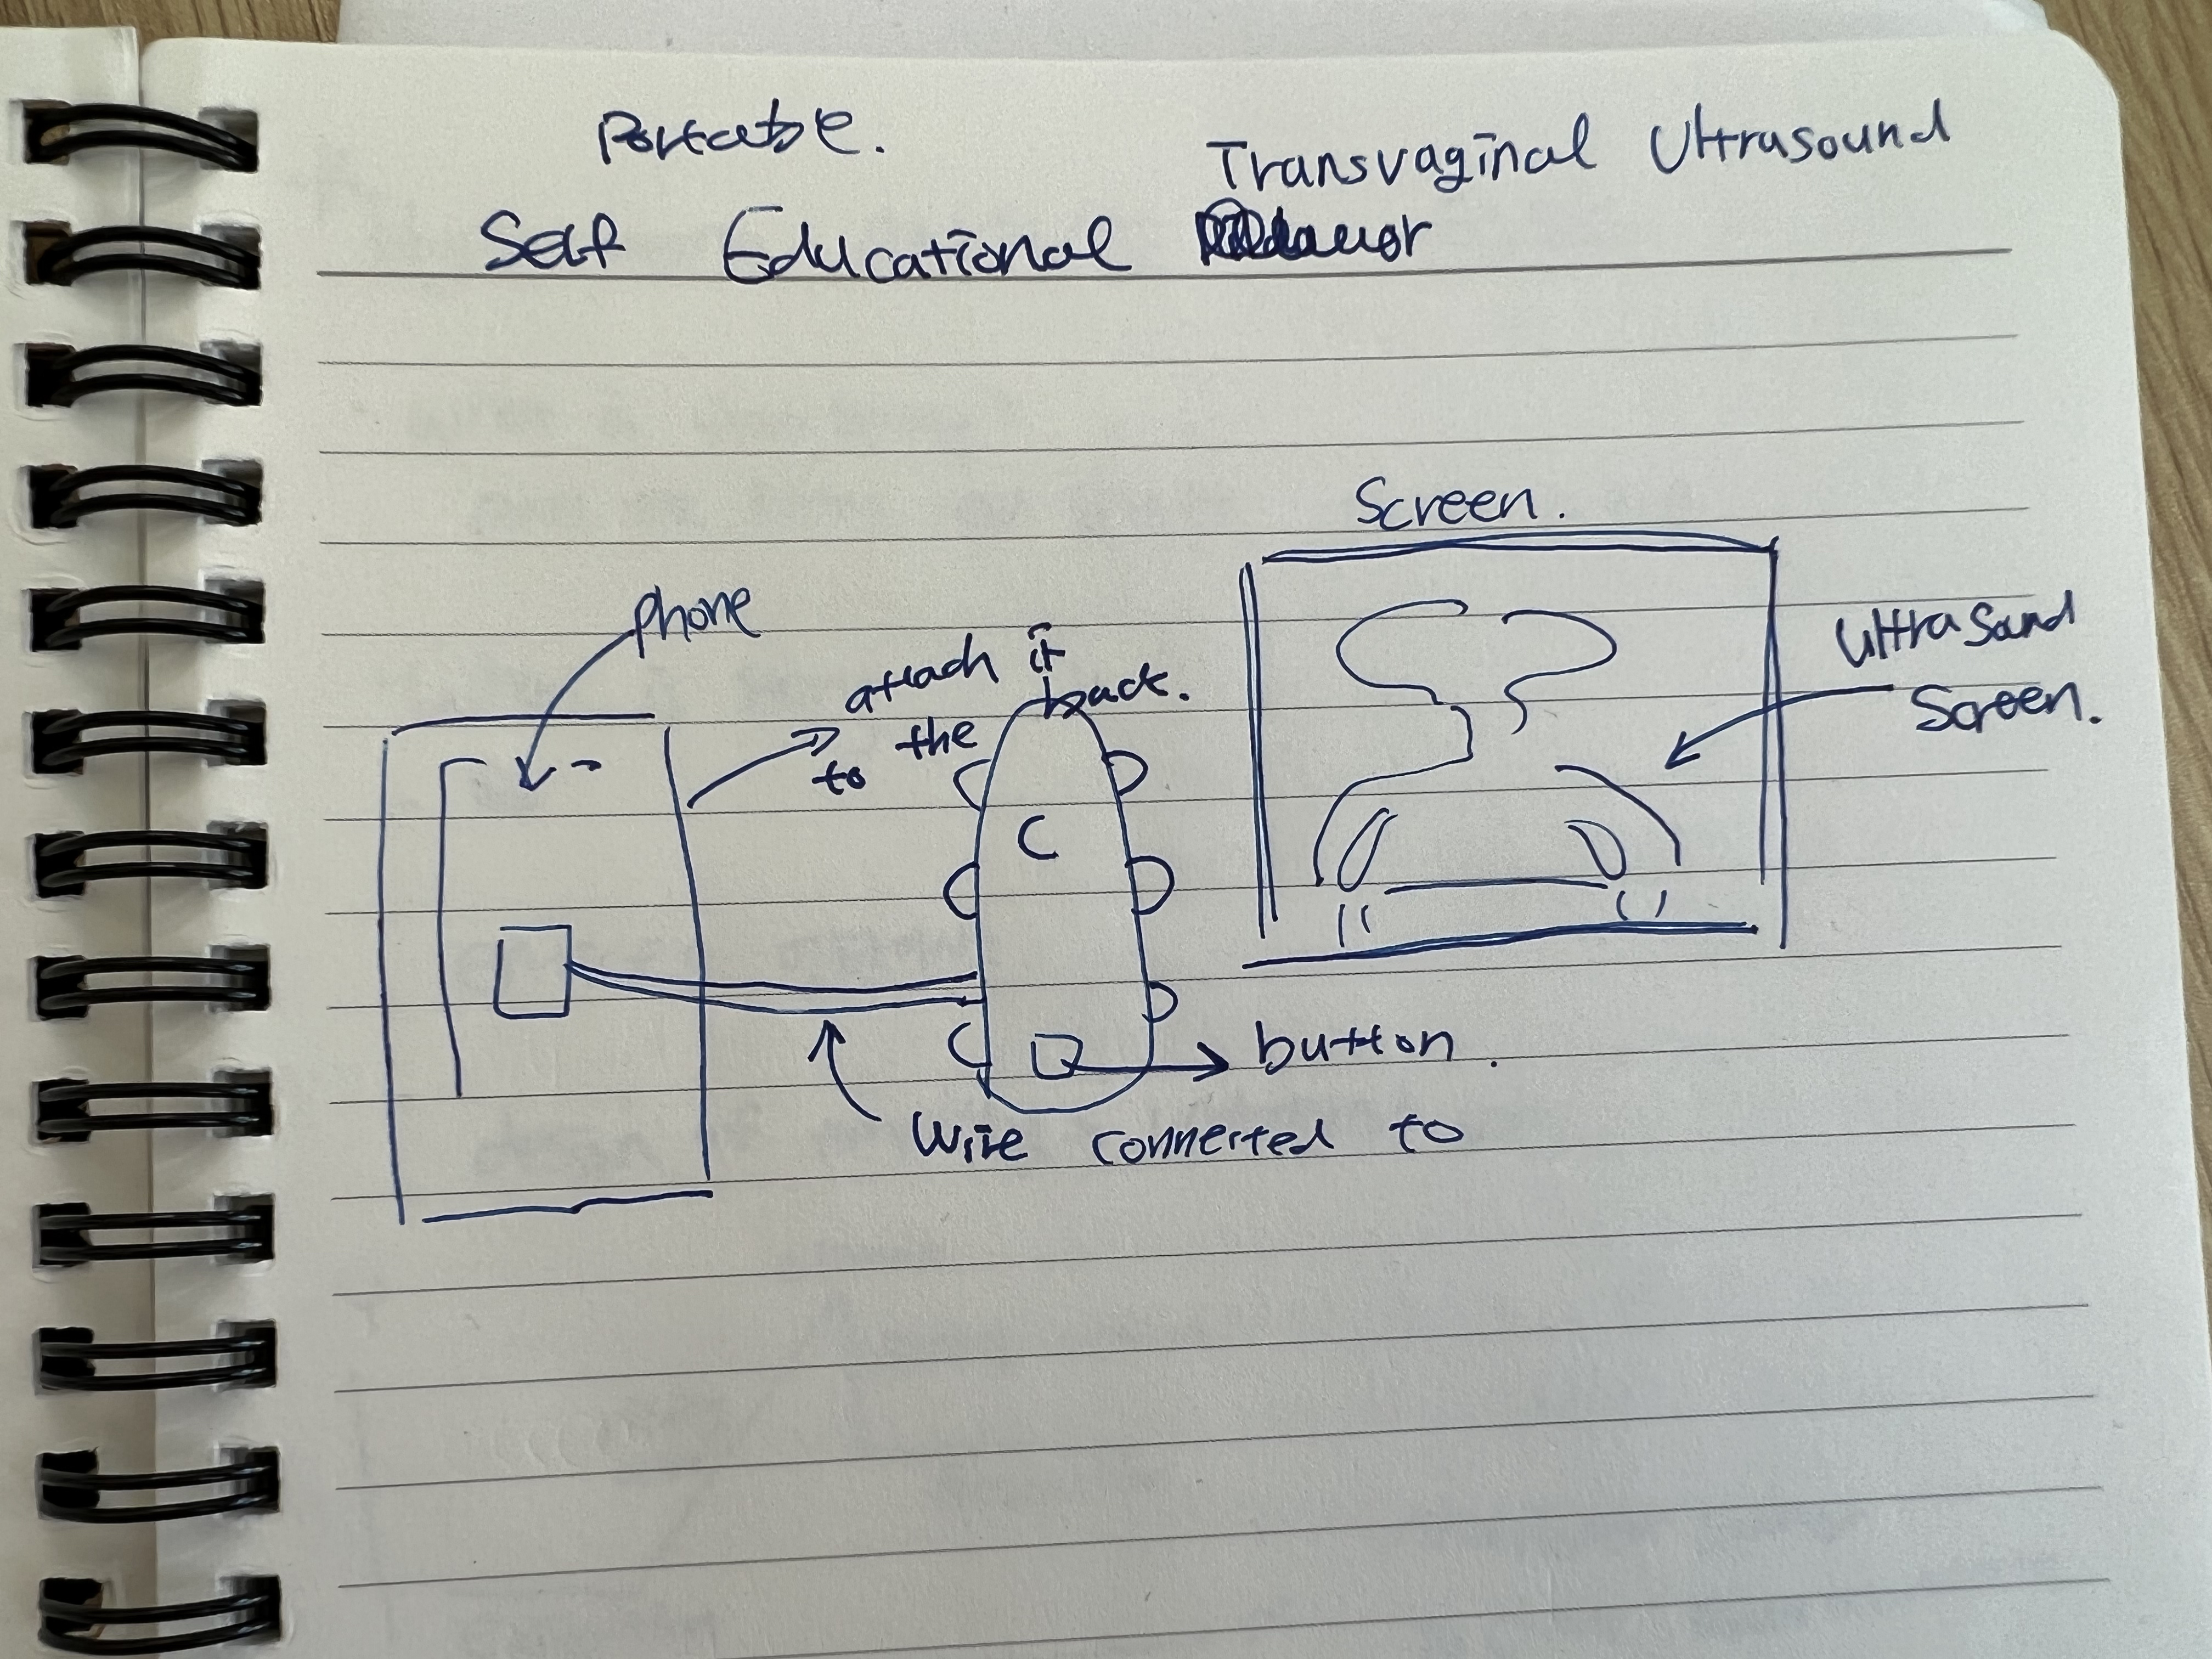 Portable.
Transvaginal Ultrasound
Self Educational
Screen.
phone
attach it
to the back.
Ultrasound
Screen.
C
button.
Wire connected to